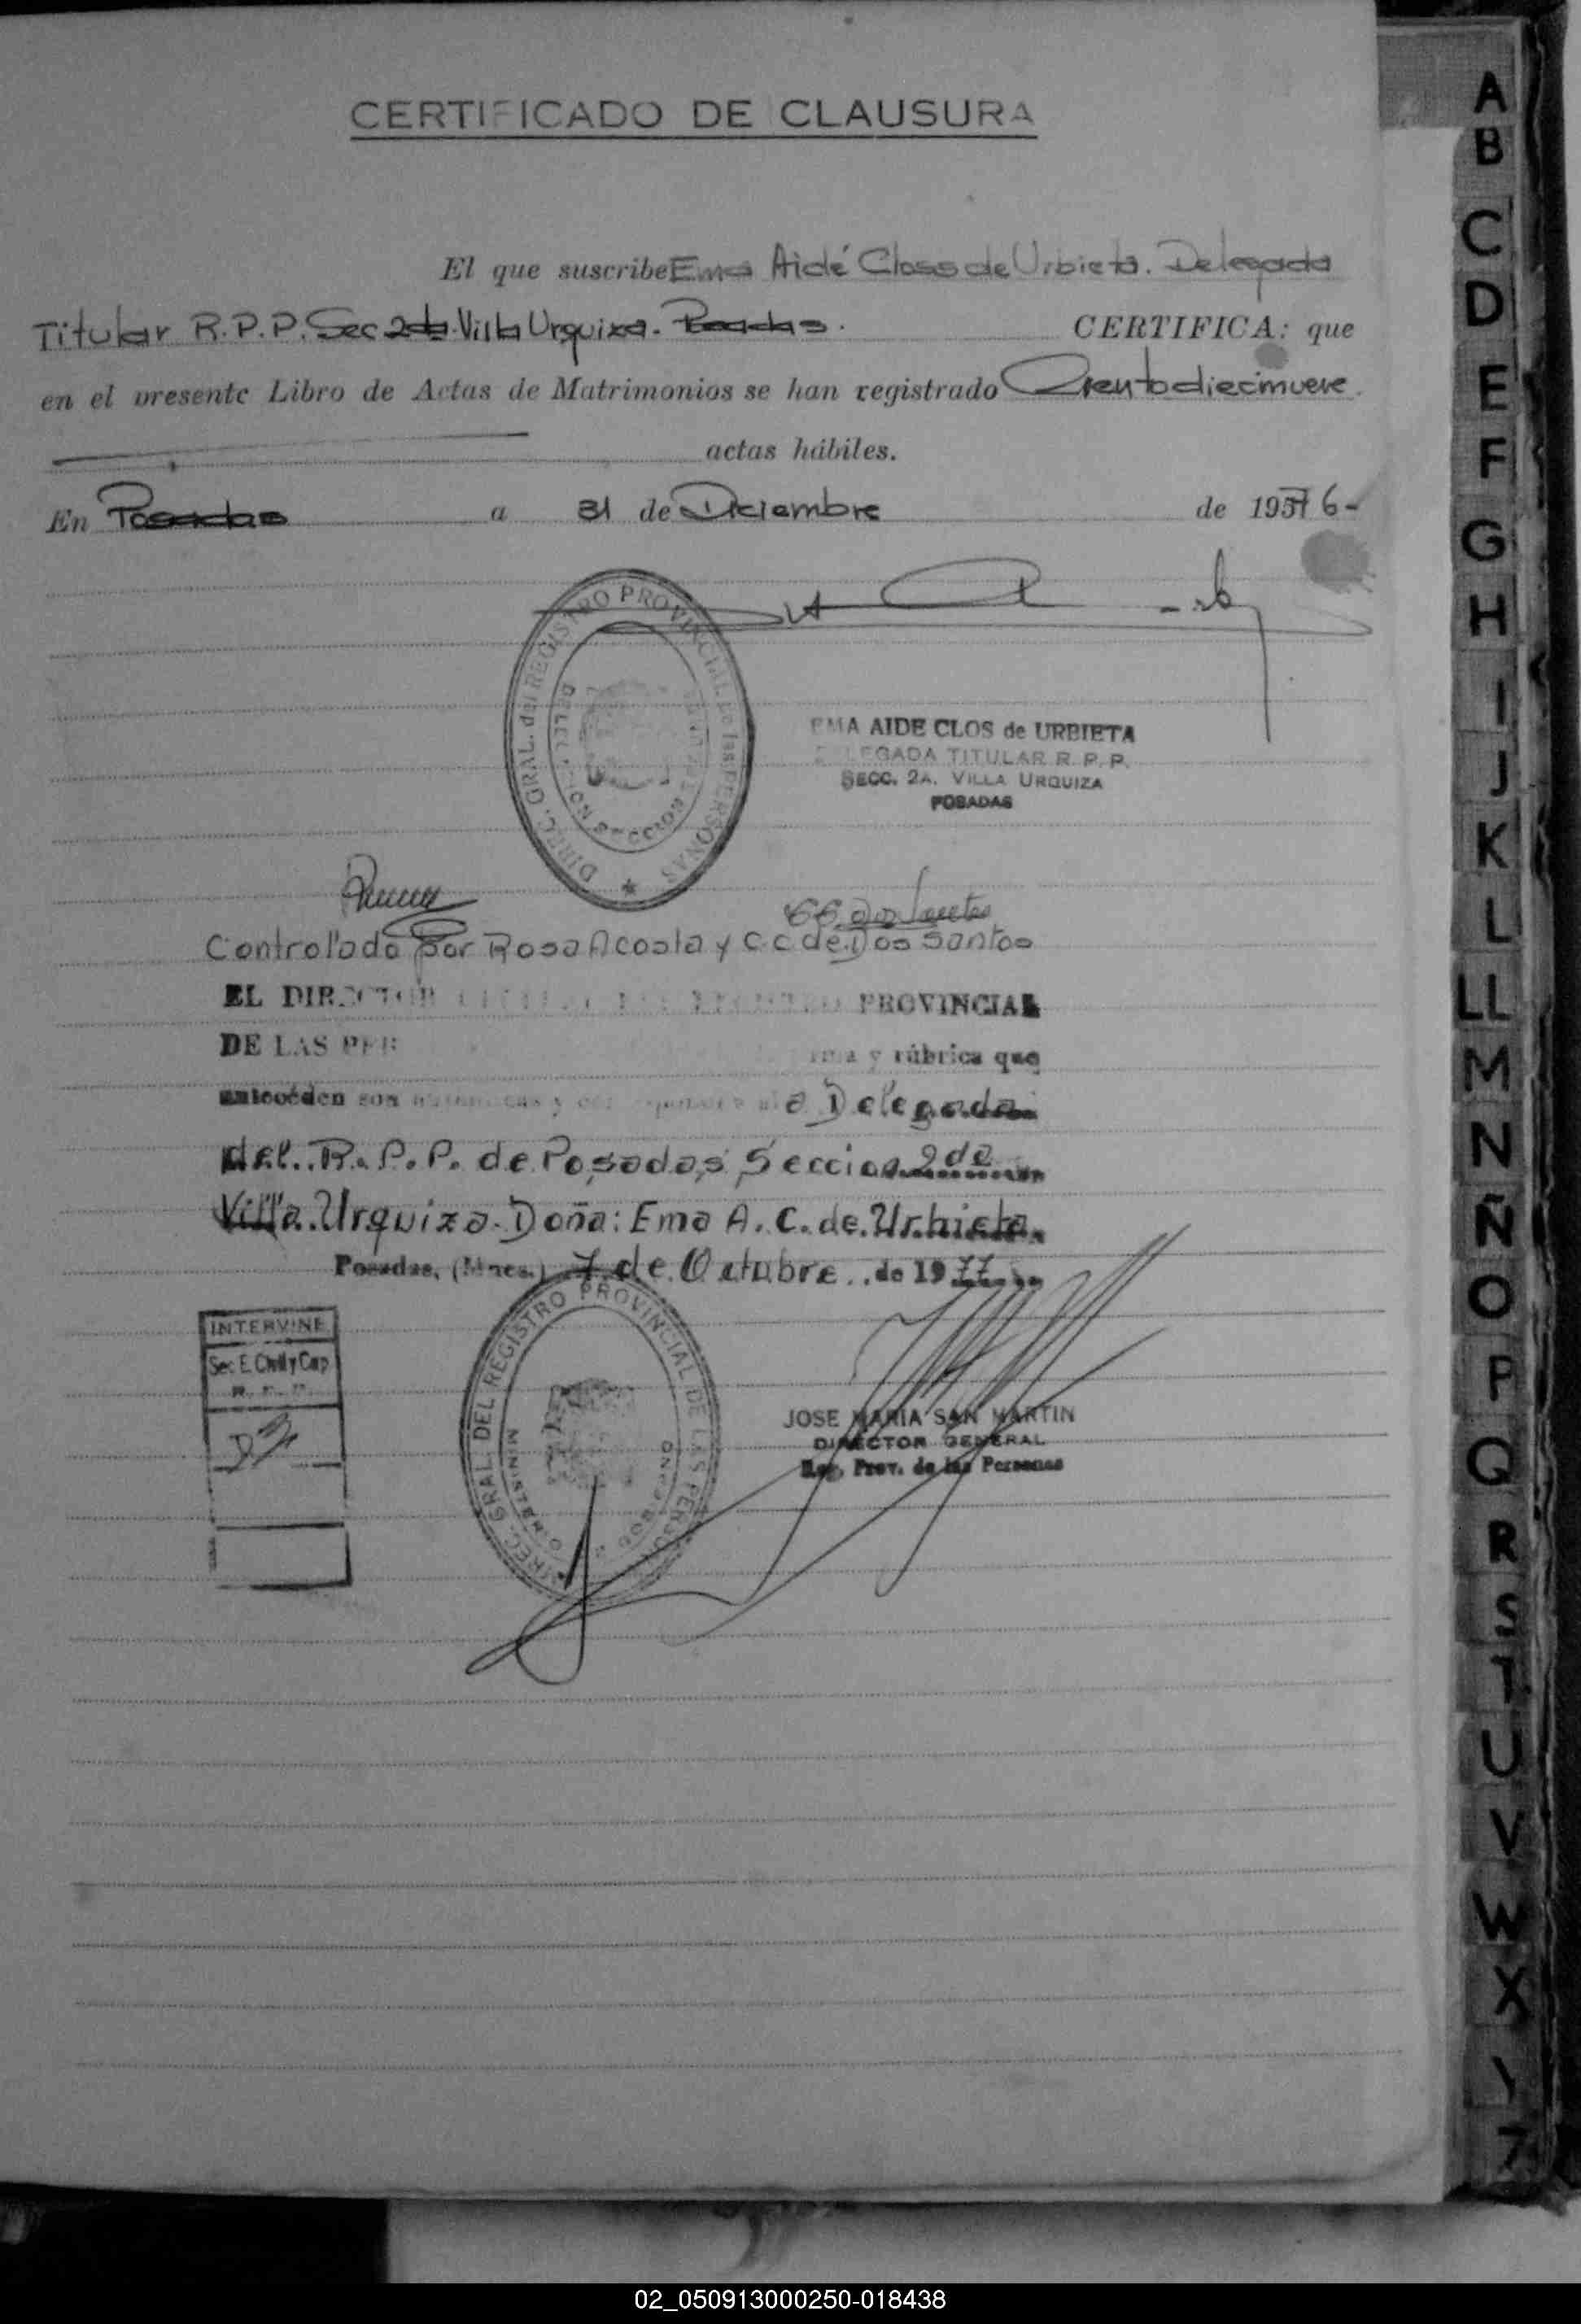 CERTIFICADO DE CLAUSURA
El que suscribe Ema Aidé Closs de Urbieta. Delegada
Titular R.P.P. Sec 2da. Villa Urquiza. Posadas. CERTIFICA: que
en el presente Libro de Actas de Matrimonios se han registrado Cientodiecinueve.
actas hábiles.
En Posadas a 31 de Diciembre de 1976-
DIREC. GRAL. del REGISTRO PROVINCIAL de las PERSONAS
SECCION
EMA AIDE CLOS de URBIETA
DELEGADA TITULAR R. P. P.
SECC. 2A. VILLA URQUIZA
POSADAS
Controlado por Rosa Acosta y C.C de Dos Santos
EL DIRECTOR PROVINCIAL
DE LAS PER y rúbrica que
anteceden son y a Delegada
del. R. P. P. de Posadas Seccion 2da
Villa. Urquiza. Doña: Ema A. C. de. Urbieta.
Posadas, (Mnes.) 7 de Octubre.. de 1977
INTERVINE
Sec. E. Civil y Cap
R. P. P.
DIREC. GRAL. DEL REGISTRO PROVINCIAL DE LAS PERSONAS
MINISTERIO
JOSE MARIA SAN MARTIN
DIRECTOR GENERAL
Reg. Prov. de las Personas
A
B
C
D
E
F
G
H
I
J
K
L
LL
M
N
Ñ
O
P
Q
R
S
T
U
V
W
X
Z
02_050913000250-018438